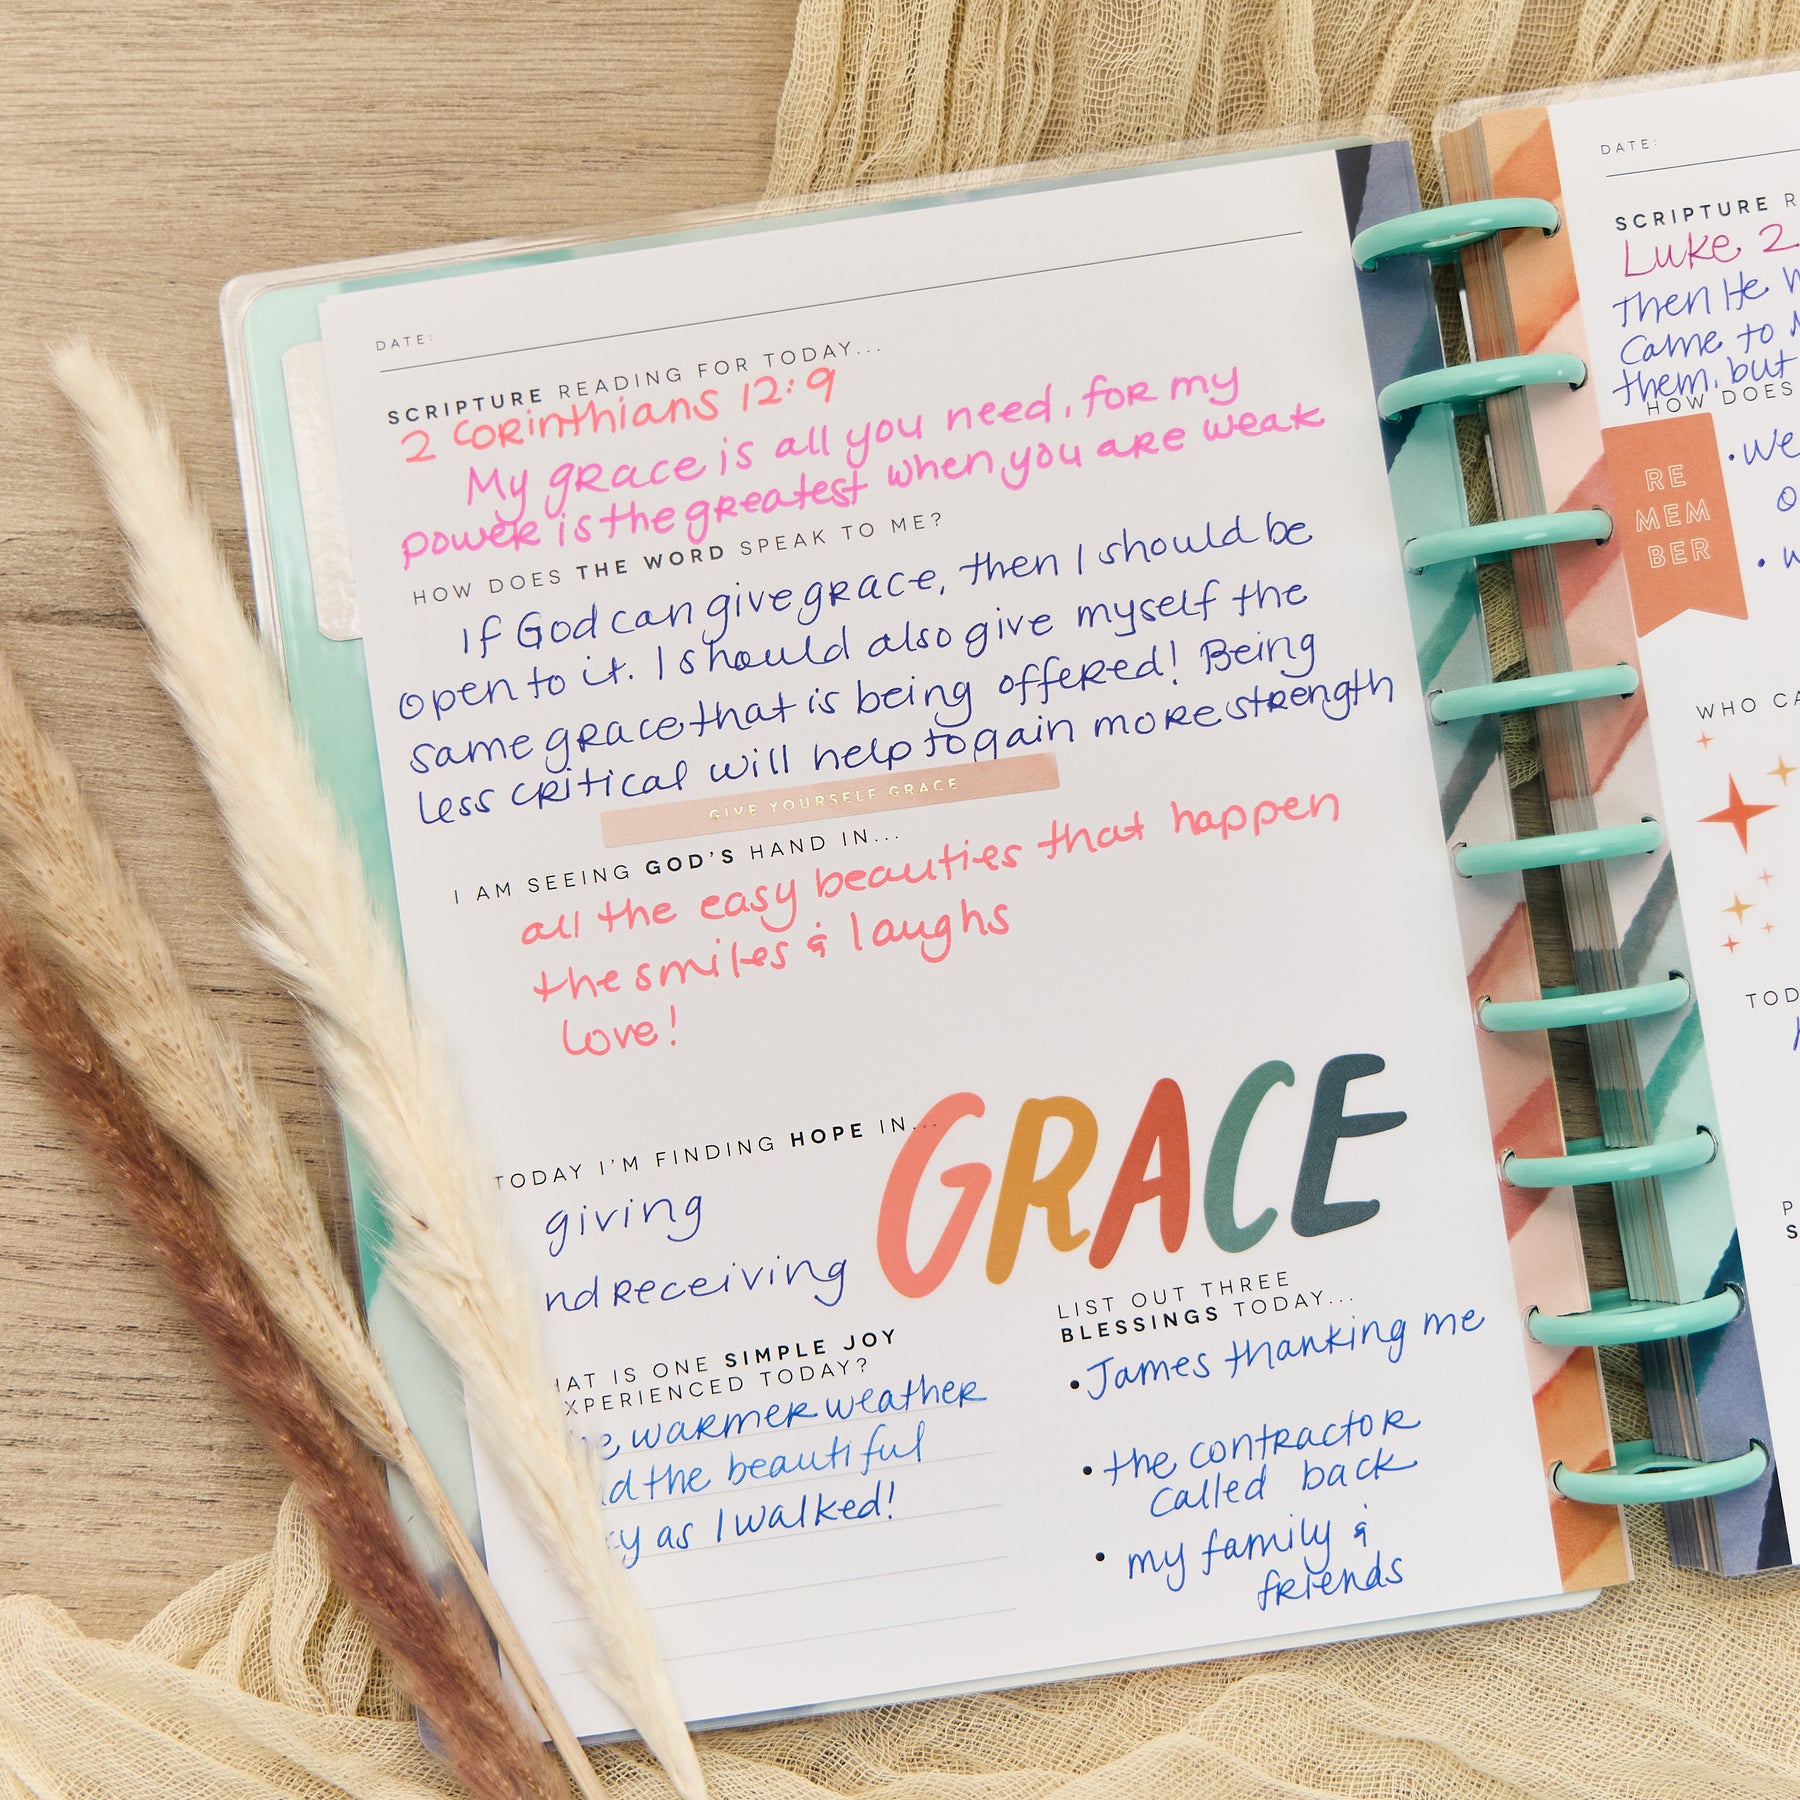 DATE:
SCRIPTURE READING FOR TODAY...
2 Corinthians 12:9
My grace is all you need, for my
power is the greatest when you are weak
HOW DOES THE WORD SPEAK TO ME?
If God can give grace, then I should be
open to it. I should also give myself the
same grace that is being offered! Being
less critical will help to gain more strength
GIVE YOURSELF GRACE
I AM SEEING GOD'S HAND IN...
all the easy beauties that happen
the smiles & laughs
love!
TODAY I'M FINDING HOPE IN...
GRACE
giving
nd receiving
HAT IS ONE SIMPLE JOY
XPERIENCED TODAY?
warmer weather
the beautiful
as I walked!
LIST OUT THREE
BLESSINGS TODAY...
• James thanking me
• the contractor
called back
• my family &
friends
DATE:
SCRIPTURE R
Luke 2
Then He w
came to
them, but
HOW DOES
RE
MEM
BER
• We
• w
WHO CA
TOD
P
S